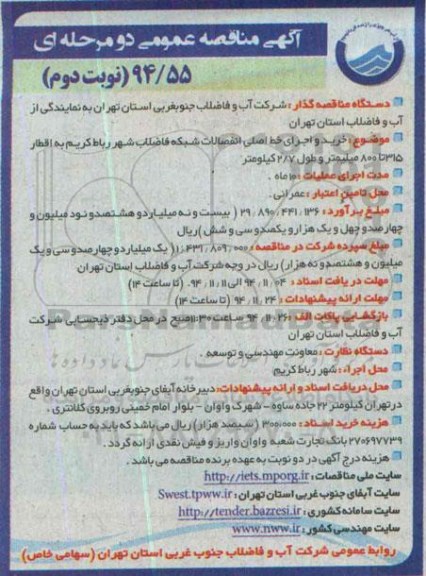 آگهی مناقصه عمومی دو مرحله ای
۹۴/۵۵ (نوبت دوم)
دستگاه مناقصه گذار : شرکت آب و فاضلاب جنوبغربی استان تهران به نمایندگی از
آب و فاضلاب استان تهران
موضوع : خرید و اجرای خط اصلی انفصالات شبکه فاضلاب شهر رباط کریم به اقطار
۳۱۵ تا ۸۰۰ میلیمتر و طول ۲/۷ کیلومتر
مدت اجرای عملیات : ۱۰ ماه .
محل تامین اعتبار : عمرانی.
مبلغ برآورد : ۲۹/۸۹۰/۴۴۱/۱۳۶ ( بیست و نه میلیارد و هشتصد و نود میلیون و
چهارصد و چهل و یک هزار و یکصد و سی و شش ) ریال
مبلغ سپرده شرکت در مناقصه : ۱/۴۳۱/۸۰۹/۰۰۰ ( یک میلیارد و چهارصد و سی و یک
میلیون و هشتصد و نه هزار) ریال در وجه شرکت آب و فاضلاب استان تهران
مهلت دریافت اسناد : ۹۴/۱۱/۰۴ الی ۹۴/۱۱/۱۱ . (تا ساعت ۱۴)
مهلت ارائه پیشنهادات : ۹۴/۱۱/۲۴ (تا ساعت ۱۴)
بازگشایی پاکات الف : ۹۴/۱۱/۲۶ ساعت ۱۱:۳۰ صبح در محل دفتر ذیحسابی شرکت
آب و فاضلاب استان تهران
دستگاه نظارت : معاونت مهندسی و توسعه .
محل اجراء : شهر رباط کریم
محل دریافت اسناد و ارائه پیشنهادات: دبیرخانه آبفای جنوبغربی استان تهران واقع
در تهران کیلومتر ۲۲ جاده ساوه - شهرک واوان - بلوار امام خمینی روبروی کلانتری .
هزینه خرید اسناد : ۳۰۰/۰۰۰ (سیصد هزار) ریال می باشد که باید به حساب شماره
۲۷۰۶۹۷۷۳۹ بانک تجارت شعبه واوان واریز و فیش نقدی ارائه گردد .
هزینه درج آگهی در دو نوبت به عهده برنده مناقصه می باشد .
سایت ملی مناقصات : http://iets.mporg.ir
سایت آبفای جنوب غربی استان تهران : Swest.tpww.ir
سایت سامانه کشوری : http://tender.bazresi.ir
سایت مهندسی کشور : www.nww.ir
روابط عمومی شرکت آب و فاضلاب جنوب غربی استان تهران (سهامی خاص)